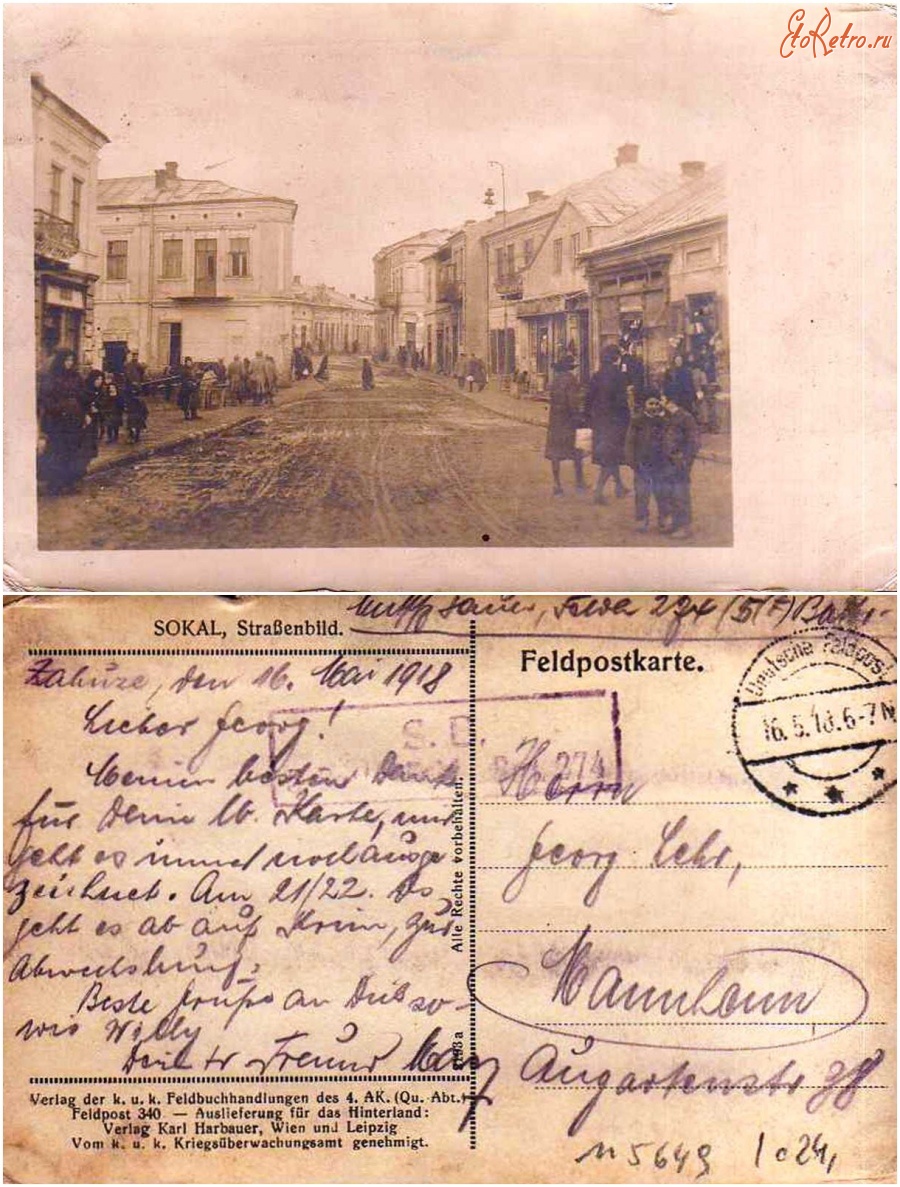 EtoRetro.ru
SOKAL, Straßenbild.
274 (5/F)
Feldpostkarte.
Deutsche Feldpost
16.5.18.6-7N
S. B.
274
Zabuze, den 16. Mai 1918
Lieber Georg!
Meinen besten Dank
für Deine lb. Karte, mir
geht es immer noch ausge
zeichnet. Am 21/22. ds
geht es ab auf Krim, zur
Abwechslung.
Beste Grüße an Dich so-
wie Willy
Dein tr Freund
Alle Rechte vorbehalten.
Herrn
Georg Lehr,
Mannheim
Augartenstr 38
Verlag der k. u. k. Feldbuchhandlungen des 4. AK. (Qu. Abt.)
Feldpost 340 — Auslieferung für das Hinterland:
Verlag Karl Harbauer, Wien und Leipzig
Vom k. u. k. Kriegsüberwachungsamt genehmigt.
n 5649